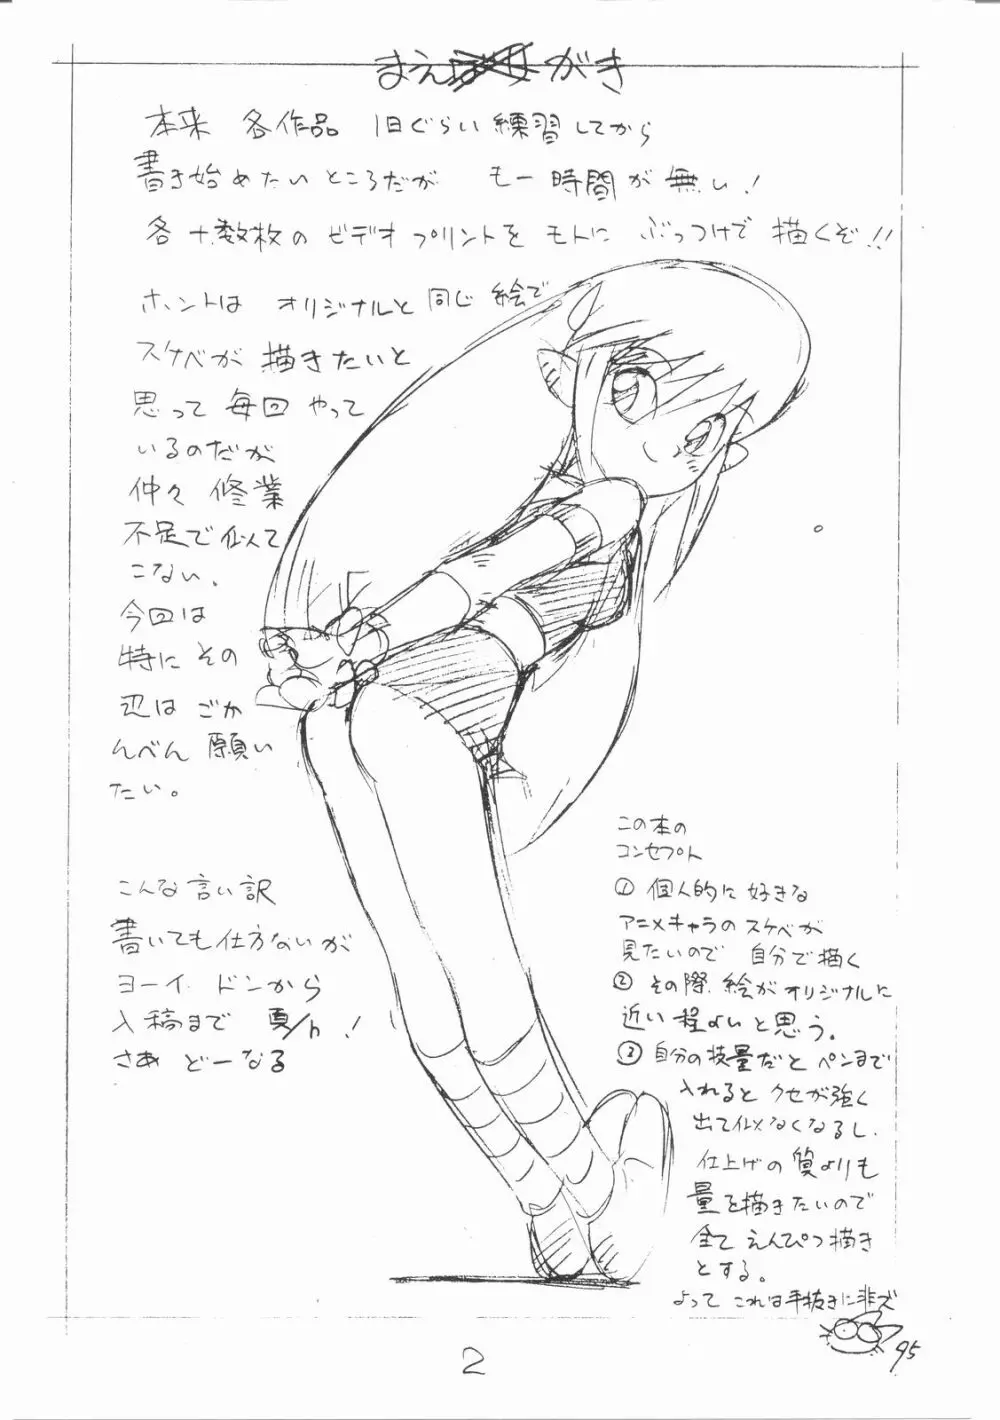 まえがき
本来 各作品 1日ぐらい練習してから
書き始めたいところだが もー時間が無い!
各十数枚のビデオプリントをモトに ぶっつけで描くぞ!!
ホントは オリジナルと同じ絵で
スケベが描きたいと
思って毎回やって
いるのだが
仲々修業
不足で似て
こない.
今回は
特にその
辺はごか
んべん願い
たい。
こんな言い訳
書いても仕方ないが
ヨーイ ドンから
入稿まで
さあ どーなる
この本の
コンセプト
① 個人的に好きな
アニメキャラのスケベが
見たいので 自分で描く
② その際 絵がオリジナルに
近い程よいと思う。
③ 自分の技量だとペンまで
入れるとクセが強く
出て似なくなるし.
仕上げの質よりも
量を描きたいので
全てえんぴつ描き
とする。
よって これは手抜きに非ズ
95
2